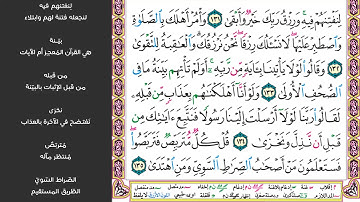 لِنَفْتِنَهُمْ فِيهِ وَرِزْقُ رَبِّكَ خَيْرٌ وَأَبْقَىٰ ١٣١ وَأْمُرْ أَهْلَكَ بِالصَّلَوٰةِ
وَاصْطَبِرْ عَلَيْهَا لَا نَسْـَٔلُكَ رِزْقًا نَّحْنُ نَرْزُقُكَ وَالْعَـٰقِبَةُ لِلتَّقْوَىٰ
١٣٢ وَقَالُوا لَوْلَا يَأْتِينَا بِـَٔايَةٍ مِّن رَّبِّهِ أَوَلَمْ تَأْتِهِم بَيِّنَةُ مَا فِى
الصُّحُفِ الْأُولَىٰ ١٣٣ وَلَوْ أَنَّا أَهْلَكْنَـٰهُم بِعَذَابٍ مِّن قَبْلِهِ
لَقَالُوا رَبَّنَا لَوْلَا أَرْسَلْتَ إِلَيْنَا رَسُولًا فَنَتَّبِعَ ءَايَـٰتِكَ مِن
قَبْلِ أَن نَّذِلَّ وَنَخْزَىٰ ١٣٤ قُلْ كُلٌّ مُّتَرَبِّصٌ فَتَرَبَّصُوا
فَسَتَعْلَمُونَ مَنْ أَصْحَـٰبُ الصِّرَٰطِ السَّوِىِّ وَمَنِ اهْتَدَىٰ ١٣٥
لِنَفْتِنَهُمْ فيه
لنجعله فتنة لهم وابتلاء
بَيِّنَة
هي القرآن المُعجز أم الآيات
من قبله
من قبل الإتيان بالبيّنة
نَخزى
نُفتضح في الآخرة بالعذاب
مُتربّصٌ
مُنتظر مآله
الصّراط السّويّ
الطّريق المستقيم